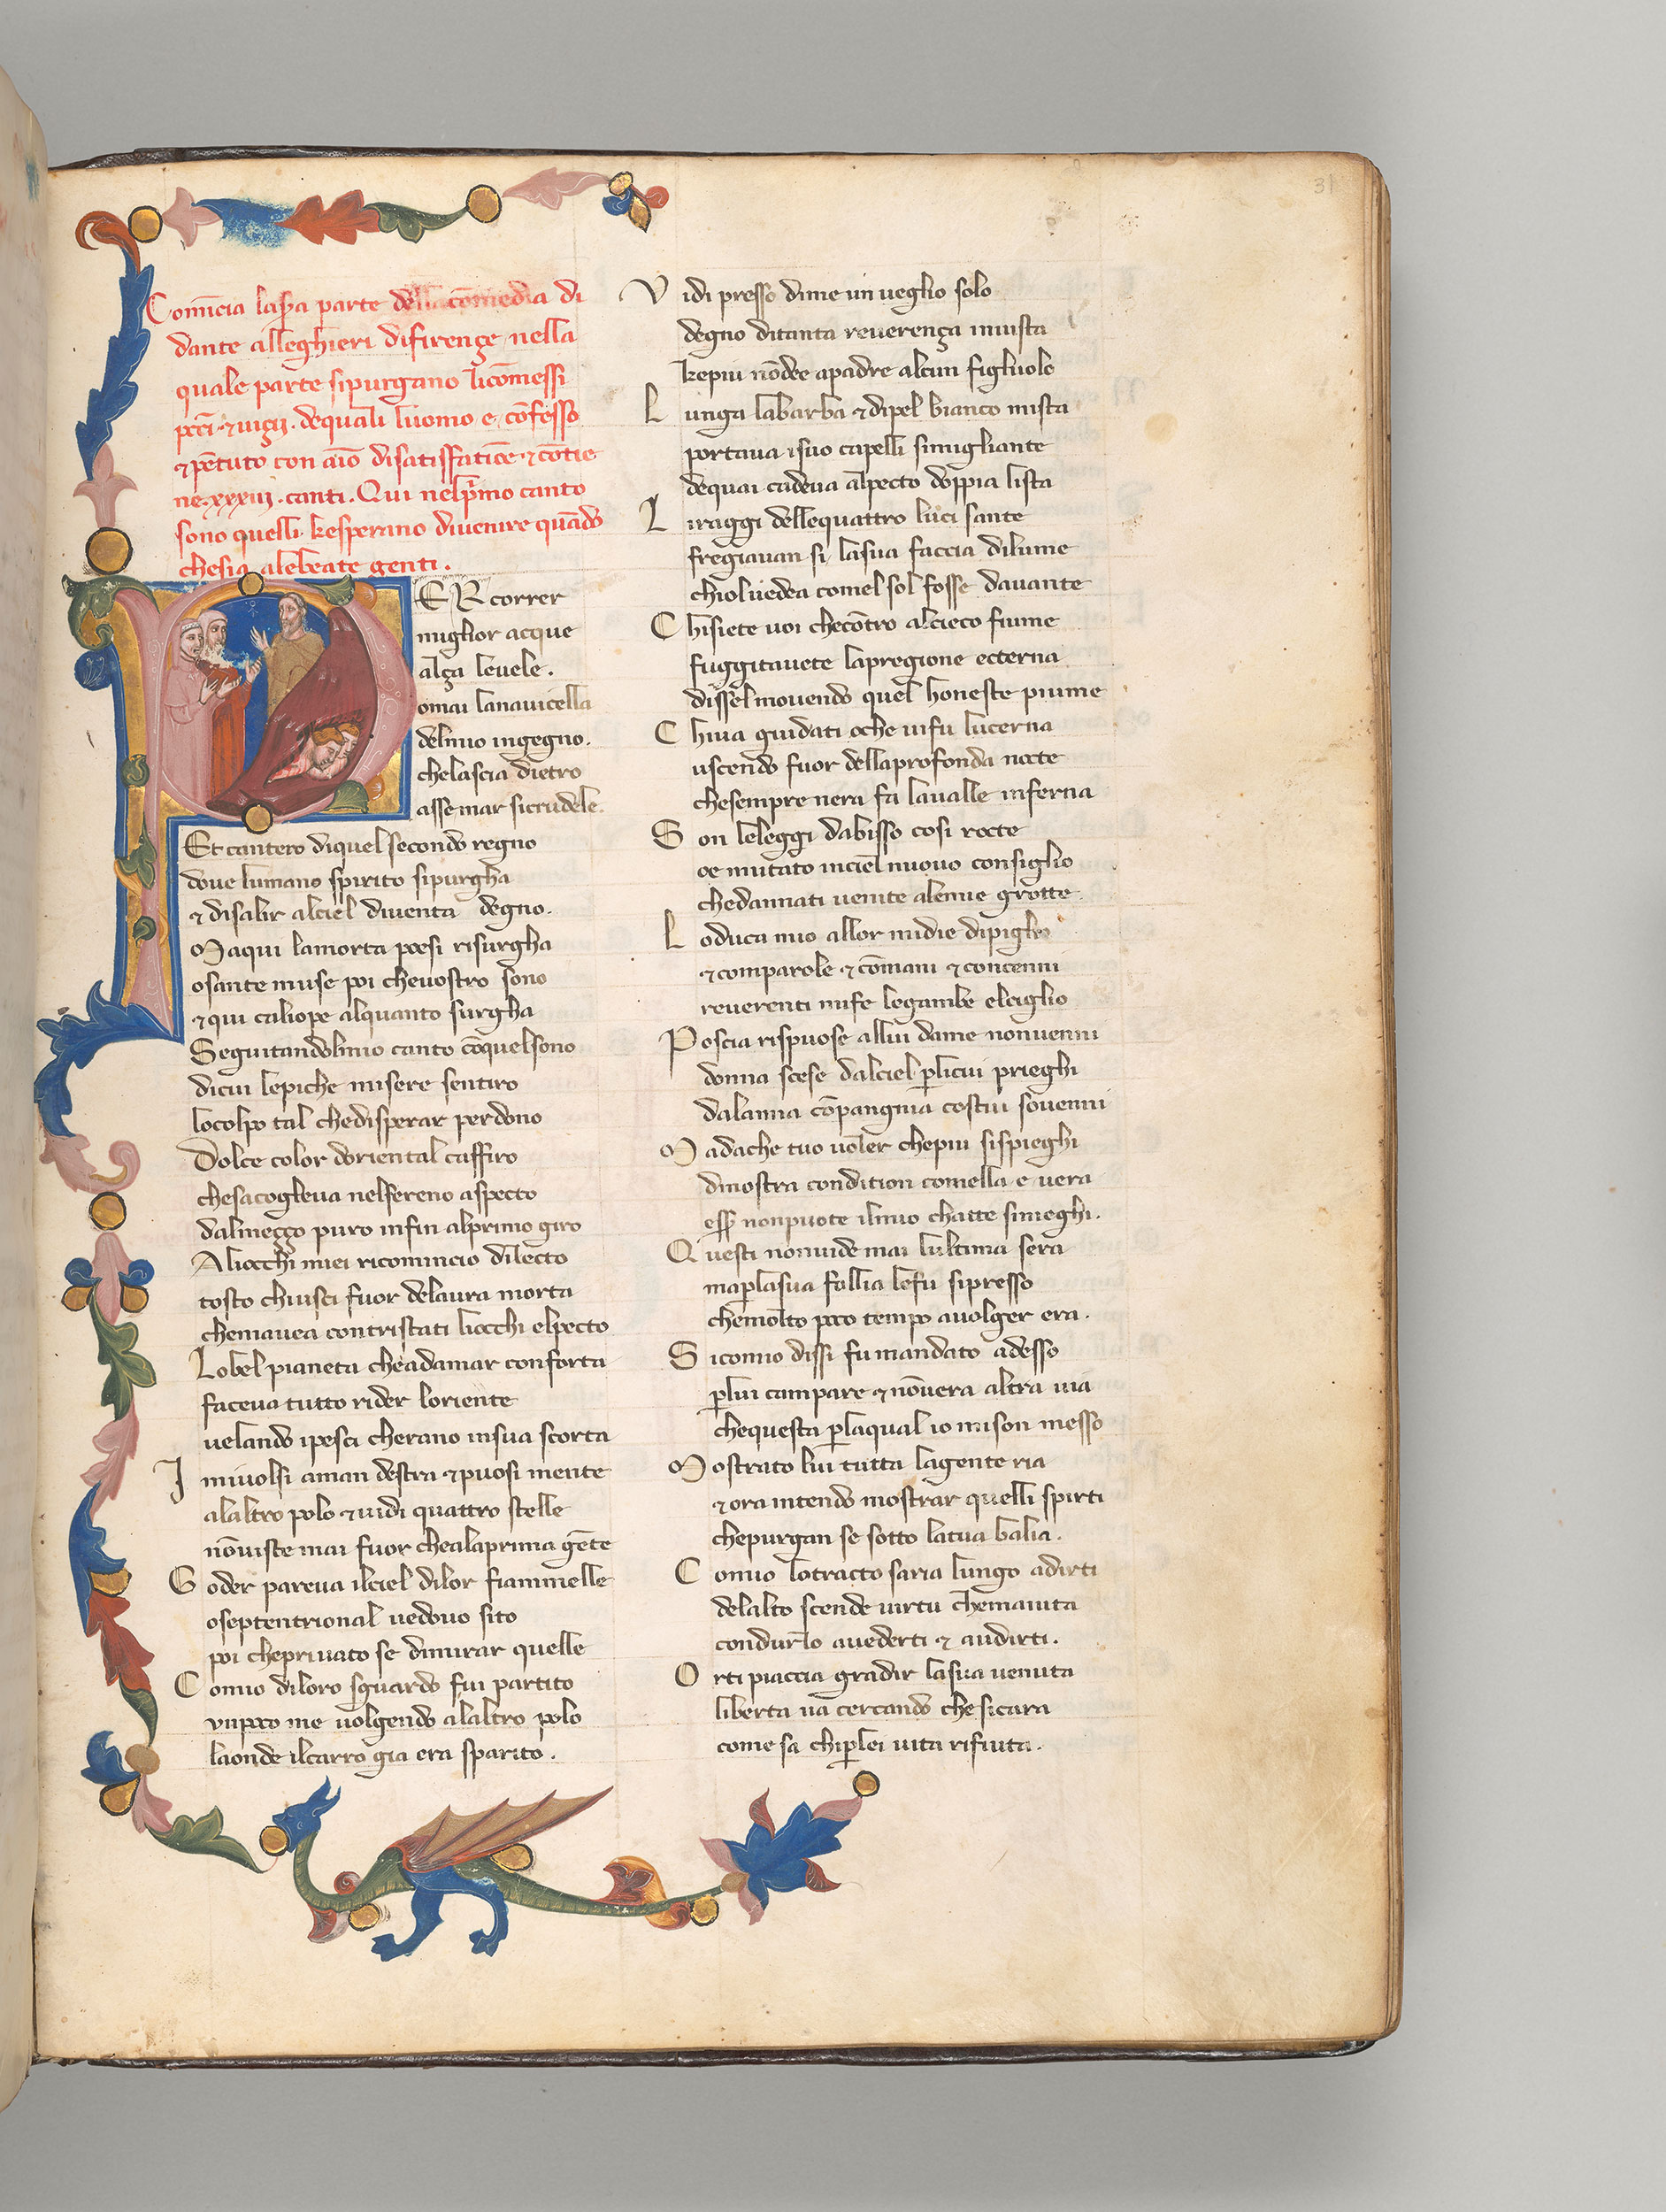 31
Comīcia la sꝑa parte della cōmedia di
dante alleghieri difirençe nella
quale parte sipurgano licōmessi
pcci ⁊ uiçij . dequali luomo e cōfesso
⁊ pētuto con aīo disatisfatiōe ⁊ cōtie
ne .xxxiij. canti . Qui nelpͥmo canto
sono quelli kesperano diuenire quādo
chesia alebeate genti .
PER correr
miglior acque
alça leuele .
omai lanauicella
delmio ingegno .
chelascia dietro
asse mar sicrudele
Et cantero diquel secondo regno
doue lumano spirito sipurgha
⁊ disalir alciel diuenta degno .
Maqui lamorta poesi risurgha
osante muse poi cheuostro sono
⁊ qui caliope alquanto surgha
Seguitandolmio canto cōquelsono
dicui lepiche misere sentiro
locolpo tal chedisperar perdono
Dolce color doriental caffiro
chesacoglieua nelsereno aspecto
dalmeççо puro infin alprimo giro
Aliocchi miei ricomincio dilecto
tosto chiusci fuor delaura morta
chemauea contristati liocchi elpecto
Lobel pianeta cheadamar conforta
faceua tutto rider loriente
uelando ipesci cherano insua scorta
I miuolsi aman destra ⁊ puosi mente
alaltro polo ⁊ uidi quattro stelle
nōuiste mai fuor chealaprima gēte
Goder pareua ilciel dilor fiammelle
oseptentrional uedouo sito
poi cheprivato se dimirar quelle
Comio diloro sguardo fui partito
vnpoco me uolgendo alaltro polo
laonde ilcarro gia era sparito .
Vidi presso dime un ueglio solo
degno ditanta reuerença inuista
kepiu nōdee apadre alcun figliuolo
Lunga labarba ⁊ dipel bianco mista
portaua isuo capelli simigliante
dequai cadeua alpecto doppia lista
Liraggi dellequattro luci sante
fregiauan si lasua faccia dilume
chioluedea comel sol fosse dauante
Chisiete uoi checōtro alcieco fiume
fuggitauete lapregione ecterna
dissel mouendo quel honeste piume
Chiua guidati oche uifu lucerna
uscendo fuor dellaprofonda nocte
chesempre nera fa laualle inferna
Son leleggi dabisso cosi rocte
oe mutato inciel nuouo consiglio
chedannati uenite alemie grotte
Loduca mio allor midie dipiglio
⁊ comparole ⁊ cōmani ⁊ concenni
reuerenti mife legambe elciglio
Poscia rispuose allui dame nonuenni
donna scese dalciel ꝑlicui prieghi
dalamia cōpangnia costui souenni
Madache tuo uoler chepiu sispieghi
dinostra condition comella e uera
esser nonpuote ilmio chatte sinieghi .
Questi nonuide mai lultima sera
maꝑlasua follia lefu sipresso
chemolto poco tempo auolger era .
Sicomio dissi fumandato adesso
ꝑlui campare ⁊ nōuera altra uia
chequesta ꝑlaqual io mison messo
Mostrato lui tutta lagente ria
⁊ ora intendo mostrar quelli spirti
chepurgan se sotto latua balia .
Comio lotracto saria lungo adirti
delalto scende uirtu chemaiuta
condurlo auederti ⁊ audirti .
Orti piaccia gradir lasua uenuta
liberta ua cercando che sicara
come sa chiꝑlei uita rifiuta .